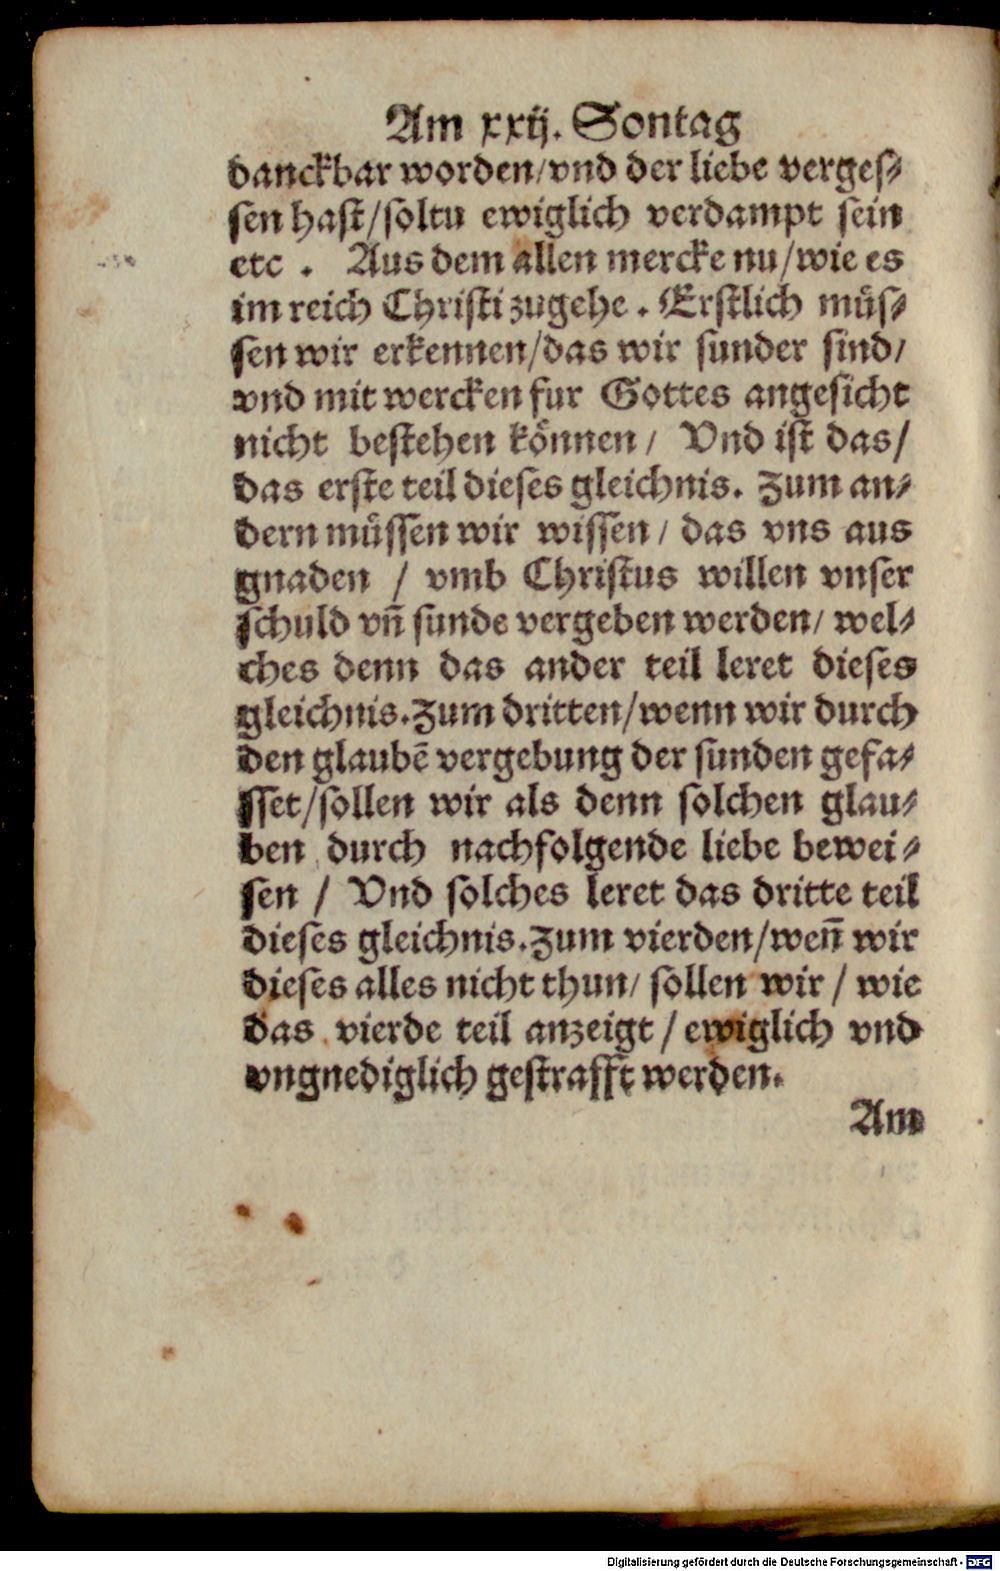 Am xxij. Sontag
danckbar worden/vnd der liebe verges⸗
sen hast/soltu ewiglich verdampt sein
etc . Aus dem allen mercke nu/wie es
im reich Christi zugehe . Erstlich muͤs⸗
sen wir erkennen/das wir sunder sind/
vnd mit wercken fur Gottes angesicht
nicht bestehen koͤnnen/ Vnd ist das/
das erste teil dieses gleichnis. Zum an⸗
dern muͤssen wir wissen/ das vns aus
gnaden / vmb Christus willen vnser
schuld vñ sunde vergeben werden/ wel⸗
ches denn das ander teil leret dieses
gleichnis. Zum dritten/wenn wir durch
den glaubẽ vergebung der sunden gefa⸗
sset/sollen wir als denn solchen glau⸗
ben durch nachfolgende liebe bewei⸗
sen / Vnd solches leret das dritte teil
dieses gleichnis. Zum vierden/weñ wir
dieses alles nicht thun/ sollen wir / wie
das vierde teil anzeigt / ewiglich vnd
vngnediglich gestrafft werden.
Am
Digitalisierung gefördert durch die Deutsche Forschungsgemeinschaft - DFG